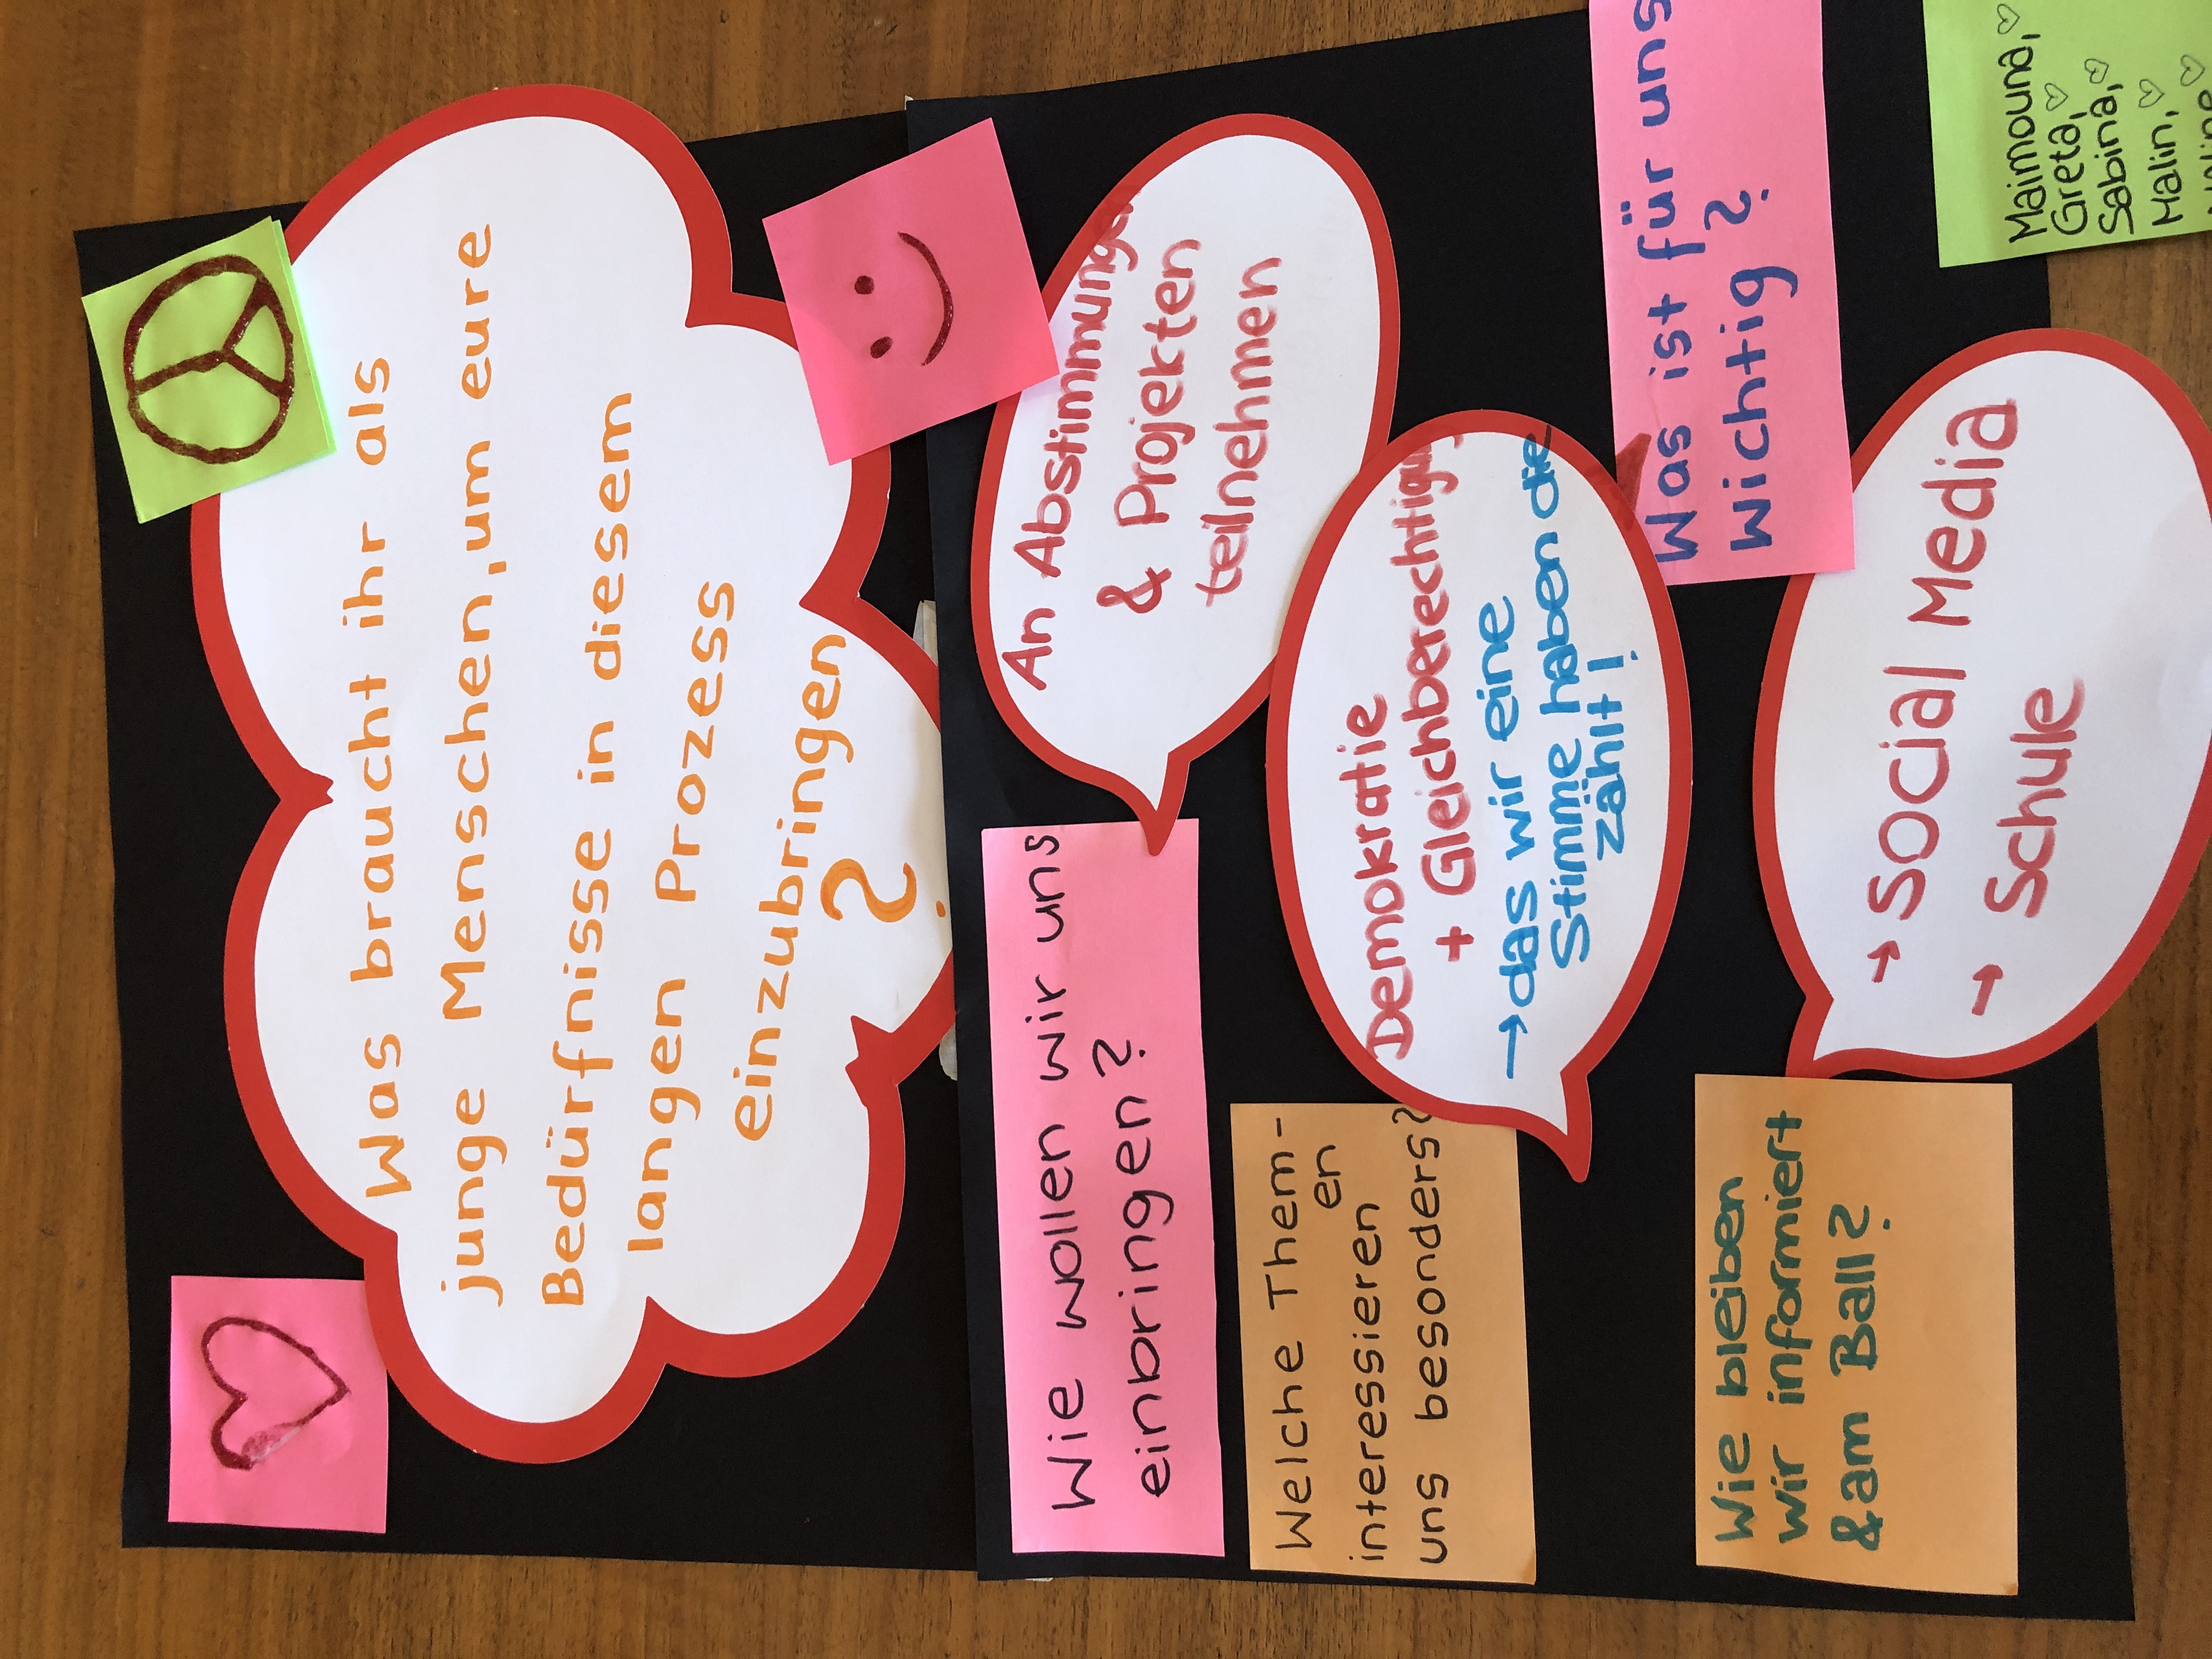 Was braucht ihr als
junge Menschen, um eure
Bedürfnisse in diesem
langen Prozess
einzubringen
?
Wie wollen wir uns
einbringen?
An Abstimmungen
& Projekten
teilnehmen
Welche Them-
en
interessieren
uns besonders?
Demokratie
+ Gleichberechtigung
→ das wir eine
Stimme haben die
zählt!
Was ist für uns
wichtig?
Wie bleiben
wir informiert
& am Ball?
→ Social Media
→ Schule
Maimouna, ♡
Greta, ♡
Sabina, ♡
Malin, ♡